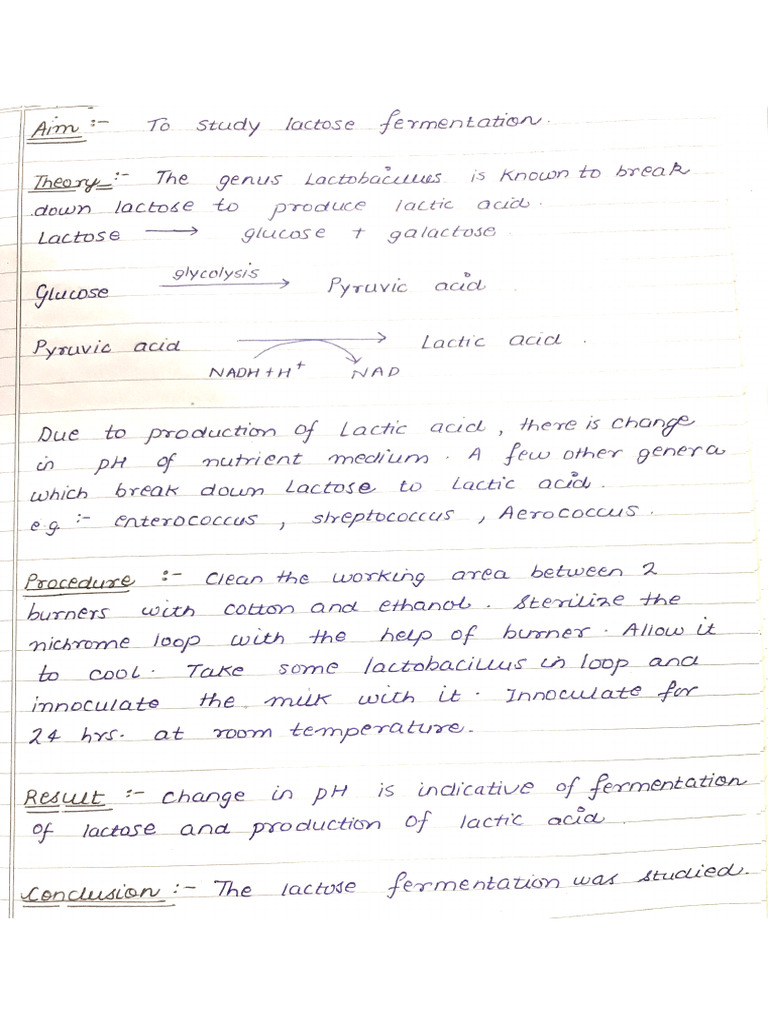 Aim :- To study lactose fermentation.
Theory :- The genus Lactobacillus is known to break
down lactose to produce lactic acid.
Lactose → glucose + galactose.
glycolysis
Glucose → Pyruvic acid
Pyruvic acid → Lactic acid.
NADH+H⁺ NAD
Due to production of Lactic acid, there is change
in pH of nutrient medium. A few other genera
which break down Lactose to Lactic acid.
e.g. :- enterococcus, streptococcus, Aerococcus.
Procedure :- Clean the working area between 2
burners with cotton and ethanol. Sterilize the
nichrome loop with the help of burner. Allow it
to cool. Take some lactobacillus in loop and
innoculate the milk with it. Innoculate for
24 hrs. at room temperature.
Result :- change in pH is indicative of fermentation
of lactose and production of lactic acid.
Conclusion :- The lactose fermentation was studied.